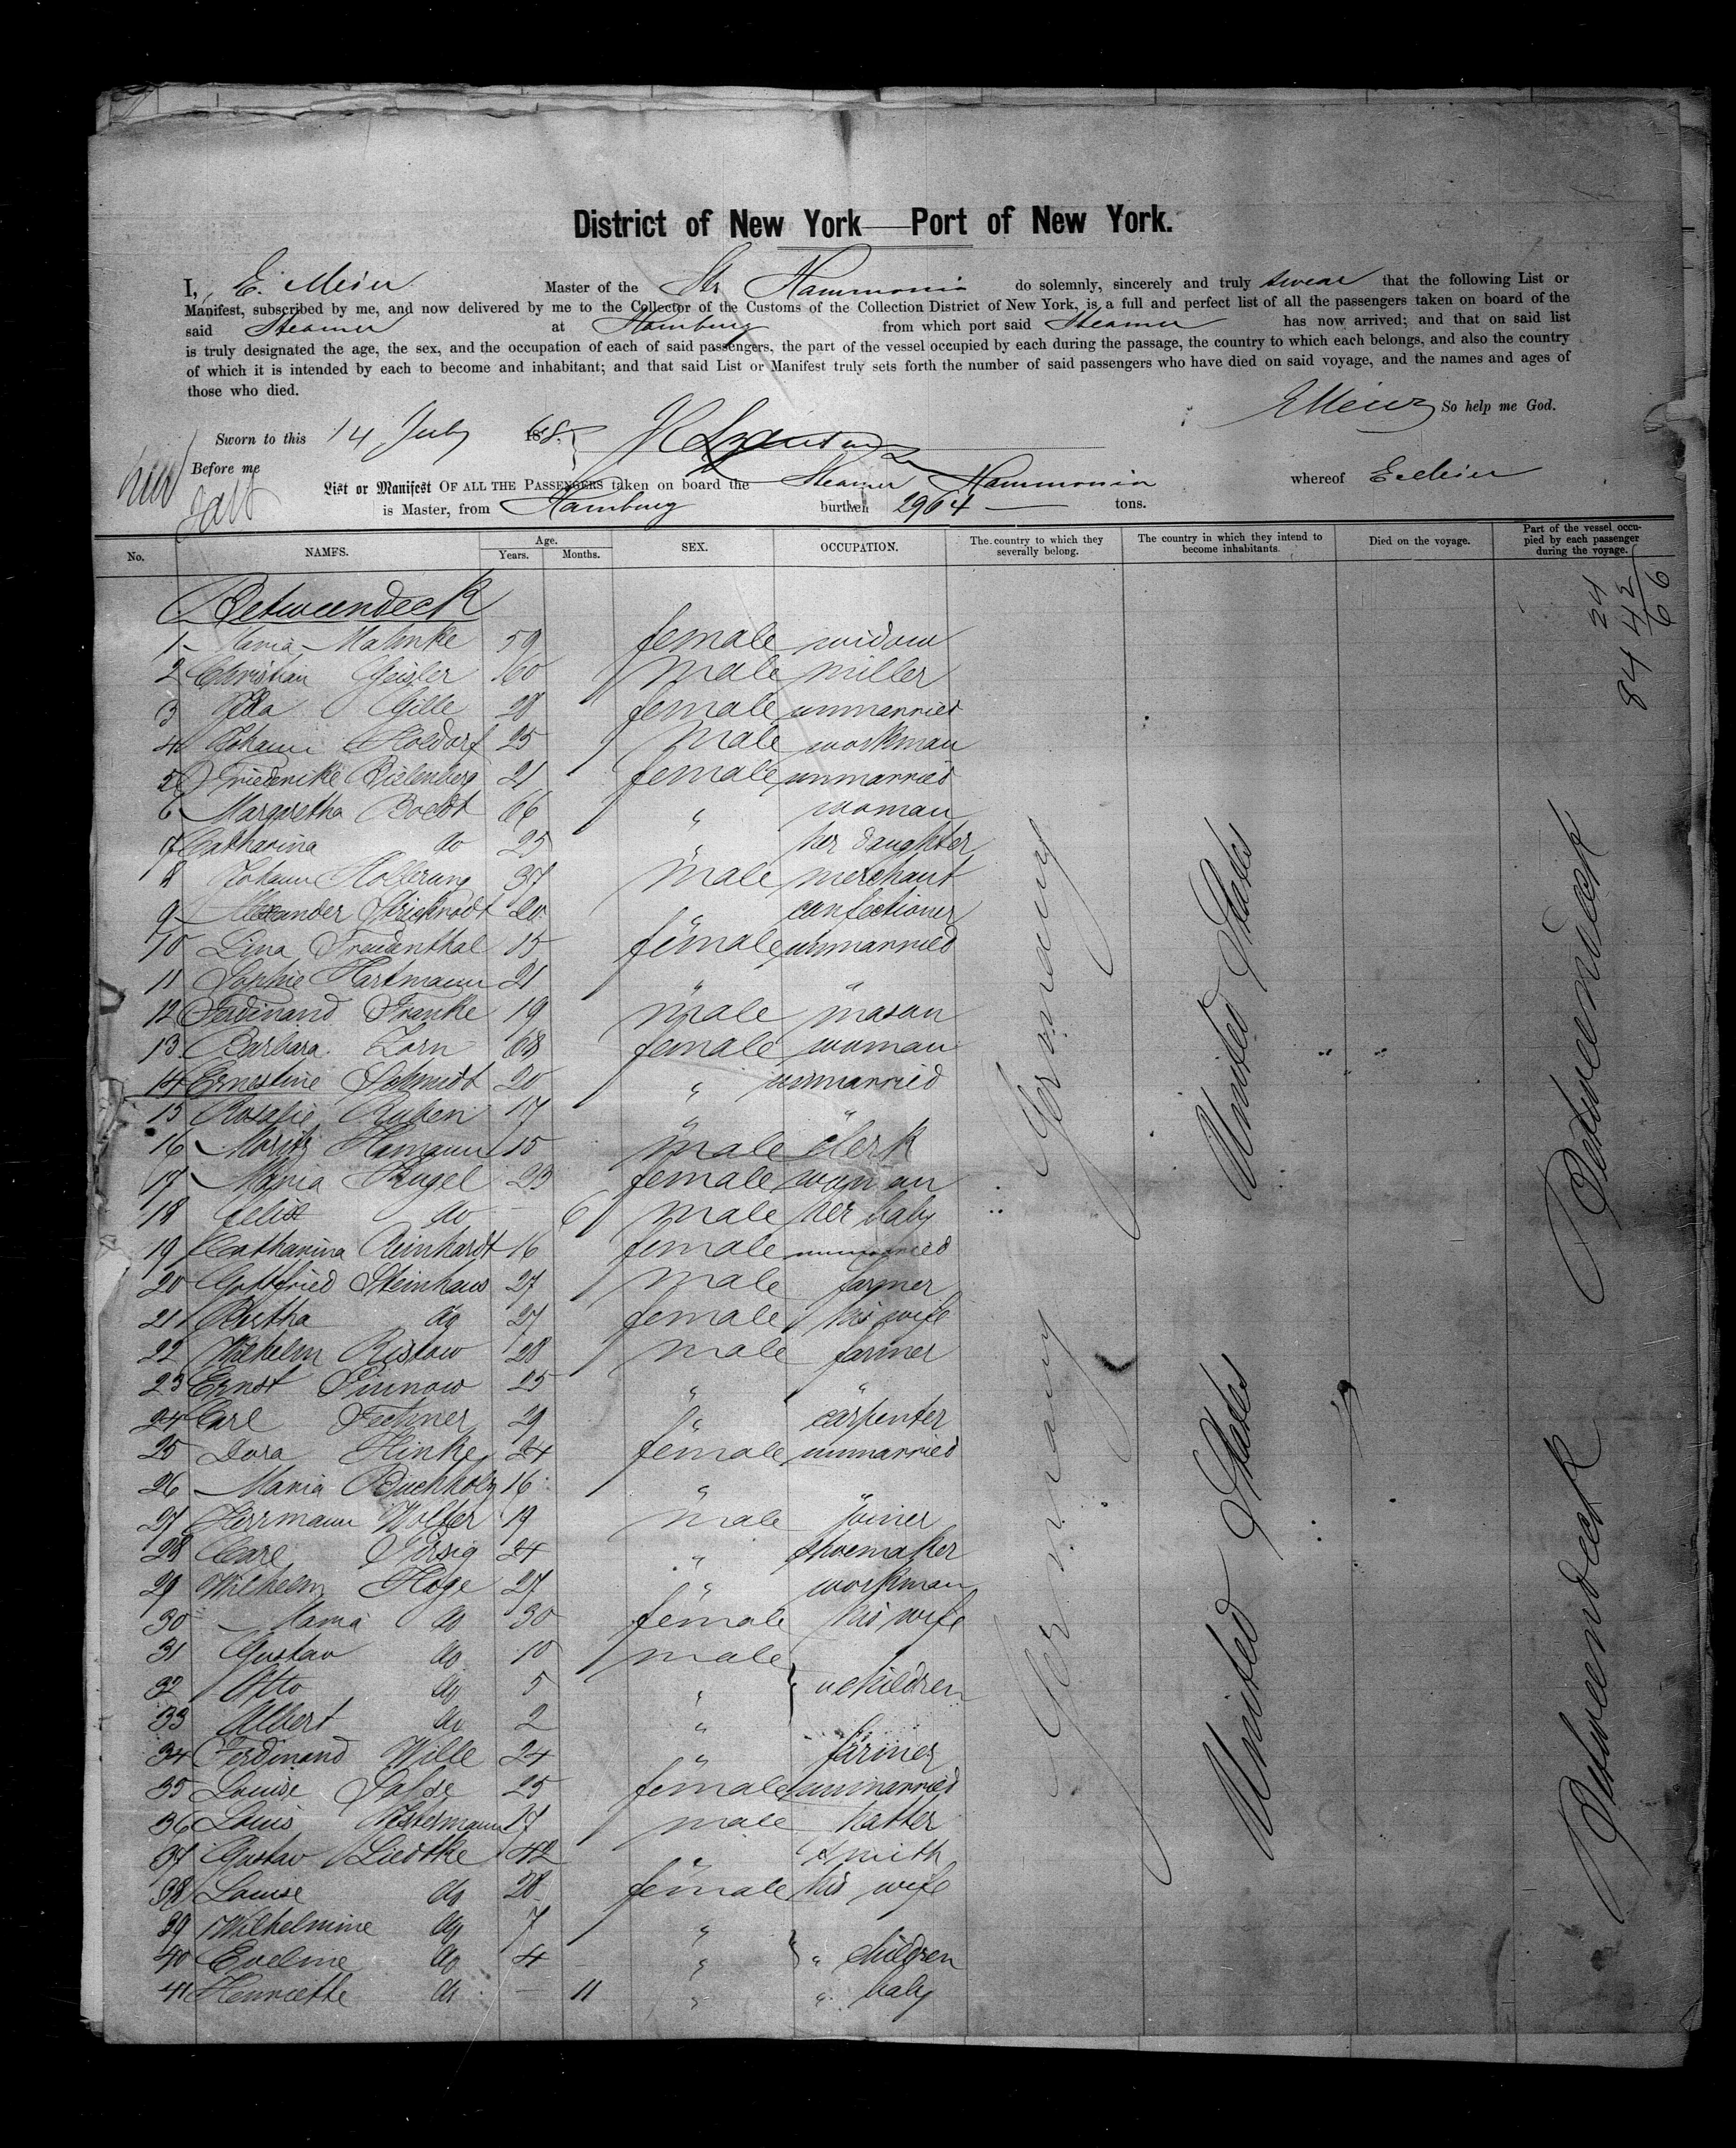 District of New York—Port of New York.
I, E. Meier Master of the Str Hammonia do solemnly, sincerely and truly swear that the following List or
Manifest, subscribed by me, and now delivered by me to the Collector of the Customs of the Collection District of New York, is a full and perfect list of all the passengers taken on board of the
said Steamer at Hamburg from which port said Steamer has now arrived; and that on said list
is truly designated the age, the sex, and the occupation of each of said passengers, the part of the vessel occupied by each during the passage, the country to which each belongs, and also the country
of which it is intended by each to become and inhabitant; and that said List or Manifest truly sets forth the number of said passengers who have died on said voyage, and the names and ages of
those who died.
E Meier So help me God.
Sworn to this 14 July 1868.
Before me
List or Manifest OF ALL THE PASSENGERS taken on board the Steamer Hammonia whereof E. Meier
is Master, from Hamburg burthen 2964 tons.
No. NAMES. Age. Years. Months. SEX. OCCUPATION. The country to which they severally belong. The country in which they intend to become inhabitants. Died on the voyage. Part of the vessel occupied by each passenger during the voyage.
24
84 42
66
Betweendeck
1 Maria Mahnke 59 female widow
2 Christian Geisler 60 male miller
3 Ida Gille 28 female unmarried
4 Johann Holdorf 25 male workman
5 Friederike Bielenberg 21 female unmarried
6 Margaretha Boedt 66 " woman
7 Catharina do 25 " her daughter
8 Johann Hollerung 37 male merchant
9 Alexander Strickrodt 20 " confectioner
10 Lina Freudenthal 15 female unmarried
11 Sophie Hartmann 21 " "
12 Ferdinand Franke 19 male mason
13 Barbara Zorn 68 female woman
14 Ernestine Schmidt 20 " unmarried
15 Rosalie Ruben 17 " "
16 Moritz Hamann 15 male clerk
17 Maria Rugel 23 female woman
18 Felix do - 6 male her baby
19 Catharina Reinhardt 16 female unmarried
20 Gottfried Steinhaus 27 male farmer
21 Bertha do 27 female his wife
22 Wilhelm Ristow 28 male farmer
23 Ernst 25 " "
24 Carl Fechner 29 " carpenter
25 Dora Hinke 24 female unmarried
26 Maria Buchholz 16 " "
27 Herrmann Wolter 19 male joiner
28 Carl 24 " shoemaker
29 Wilhelm Hoge 27 " workman
30 Maria do 30 female his wife
31 Gustav do 10 male
32 Otto do 5 " " children
33 Albert do 2 "
34 Ferdinand Wille 24 " farmer
35 Louise 25 female unmarried
36 Louis 17 male hatter
37 Gustav Liedtke 42 " smith
38 Louise do 28 female his wife
39 Wilhelmine do 7 "
40 Eveline do 4 " " children
41 Henriette do - 11 " " baby
Germany
Germany
United States
United States
Betweendeck
Betweendeck